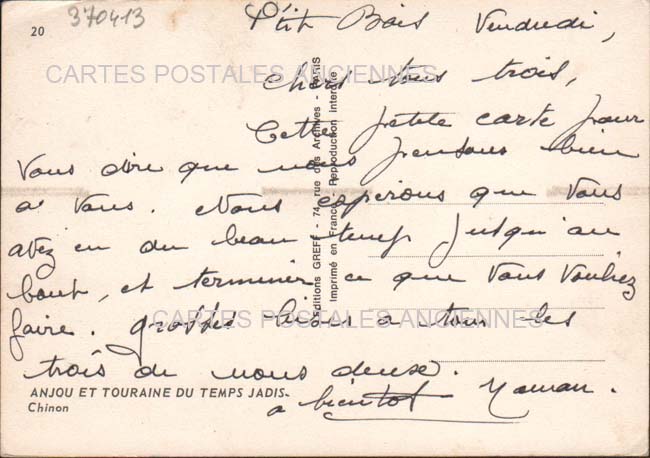 20
370413
P'tit Bois Vendredi,
CARTES POSTALES ANCIENNES
Chers tous trois,
Cette petite carte pour
vous dire que nous pensons bien
à vous. Nous espérons que vous
avez eu du beau temps jusqu'au
bout, et terminer ce que vous vouliez
faire. grosses bises a tous les
CARTES POSTALES ANCIENNES
trois de nous deux.
ANJOU ET TOURAINE DU TEMPS JADIS
Chinon
a bientot Maman.
Editions GREFF - 74, rue des Archives - PARIS
Imprimé en France - Reproduction interdite